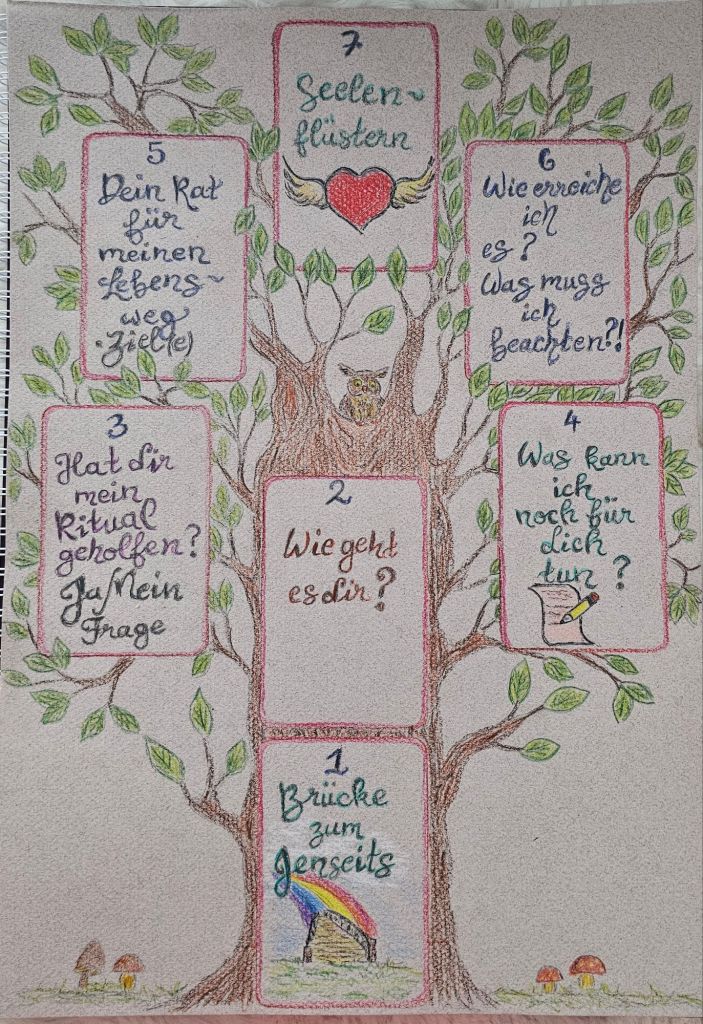 7
Seelen~
flüstern
5
Dein Rat
für
meinen
Lebens~
weg
·Ziel(e)
6
Wie erreiche
ich
es?
Was muss
ich
beachten?!
3
Hat dir
mein
Ritual
geholfen?
Ja/Nein
Frage
4
Was kann
ich
noch für
dich
tun?
2
Wie geht
es dir?
1
Brücke
zum
Jenseits